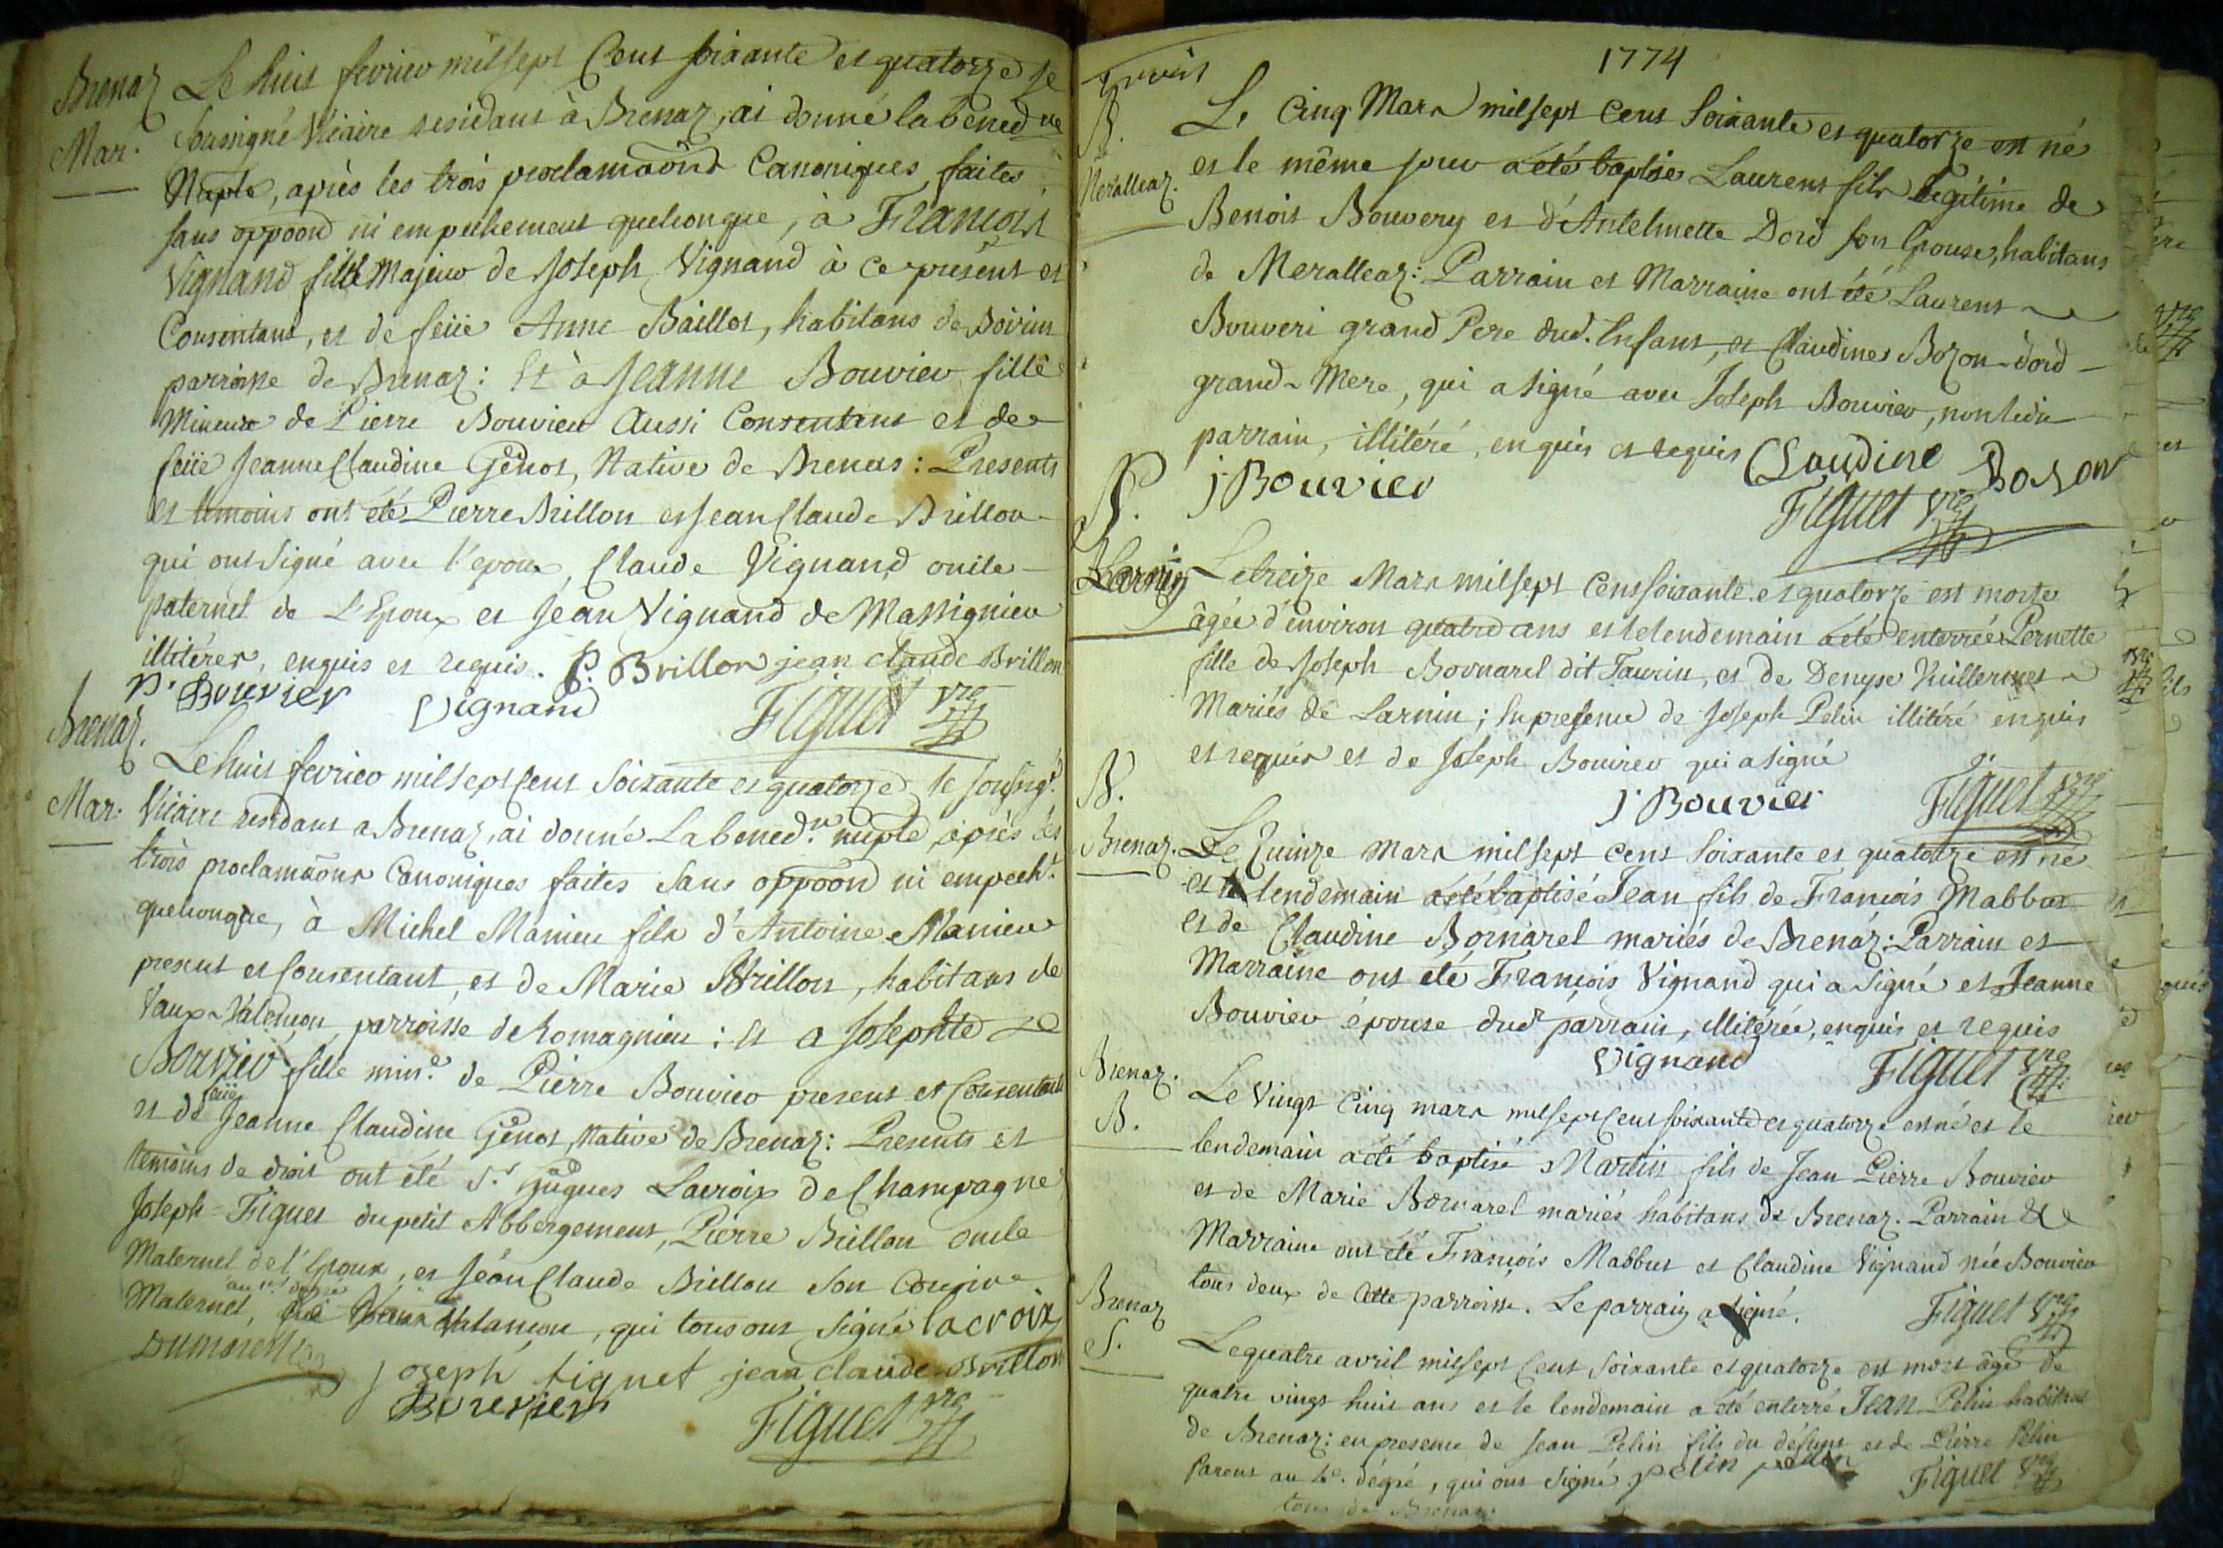 Brenaz Le huit fevrier mil sept Cent soixante et quatorze je
Mar. soussigné Vicaire residant à Brenaz, ai donné la bened.on
Nuple, après les trois proclamaons Canoniques faites
sans oppoon ni empechement quelconque, à François
Vignand fils Majeur de Joseph Vignand à ce présent et
Consentant, et de feüe Anne Baillot, habitans de
parroisse de Brenaz: Et à Jeanne Bouvier fille
Mineure de Pierre Bouvier Aussi Consentant et de
feüe Jeanne Claudine Génot, Native de Brenas: Presents
et temoins ont été Pierre Brillon et Jean Claude Brillon
qui ont signé avec l'epoux, Claude Vignand oncle
paternel de l'Epoux et Jean Vignand de Massignieu
illitérés, enquis et requis. P. Brillon jean claude Brillon
P. Bouvier Vignand Figuet vre
Brenaz. Le huit fevrier mil sept cent soixante et quatorze je soussig.é
Mar. Vicaire residant a Brenaz, ai donné La bened.on nuple, après les
trois proclamaons Canoniques faites sans oppoon ni empech.t
quelconque, à Michel Manieu fils d'Antoine Manieu
present et consentant, et de Marie Brillon, habitans de
Vaux-Valencon parroisse de Romagnieu: et a Josephte
Bouvier fille min.e de Pierre Bouvier present et Consentant
et de feüe Jeanne Claudine Génot, Native de Brenaz: Presents et
temoins de droit ont été S.r Hugues Lacroix de Champagne
Joseph Figuet du petit Abbergement, Pierre Brillon oncle
Maternel de l'Epoux, et Jean Claude Brillon son Cousin
au degré
Maternel, de Valancon, qui tous ont signé lacroix
Joseph figuet jean claude Brillon
Bouvier Figuet vre
1774
B. Le Cinq Mars mil sept cent Soixante et quatorze est né
Meralleaz. et le même jour a été baptisé Laurent fils legitime de
Benoit Bouvery et d'Antelmette Dord son Epouse, habitans
de Meralleaz: Parrain et Marraine ont été Laurent
Bouveri grand Pere dud. Enfant, et Claudine Bozon-dord
grand-Mere, qui a signé avec Joseph Bouvier, non ledit
parrain, illitéré, enquis et requis Claudine Bozon
j. Bouvier Figuet vre
S.
Larnin Le treize Mars mil sept cent soixante et quatorze est morte
âgée d'environ quatre ans et le lendemain a été enterrée Pernette
fille de Joseph Bornarel dit Taurin, et de Denyse Vuillermet
Mariés de Larnin; En presence de Joseph Pelin illitéré enquis
et requis et de Joseph Bouvier qui a signé
j. Bouvier Figuet vre
B.
Brenaz. Le Quinze mars mil sept cent soixante et quatorze est né
et le lendemain a été baptisé Jean fils de François Mabbut
et de Claudine Bornarel mariés de Brenaz: Parrain et
Marraine ont été François Vignand qui a signé et Jeanne
Bouvier épouse dud. parrain, illitérée, enquis et requis
Vignand Figuet vre
Brenaz. Le Vingt Cinq mars mil sept cent soixante et quatorze est né et le
B. lendemain a été baptisé Martin fils de Jean Pierre Bouvier
et de Marie Bornarel mariés habitans de Brenaz. Parrain &
Marraine ont été François Mabbut et Claudine Vignand née Bouvier
tous deux de cette parroisse. Le parrain a signé. Figuet vre
Brenaz
S. Le quatre avril mil sept cent soixante et quatorze est mort âgé de
quatre vingt huit ans et le lendemain a été enterré Jean Pelin habitant
de Brenaz: en presence de Jean Pelin fils du défunt et de Pierre Pelin
Parent au 4e. dégré, qui ont signé pelin pelin Figuet vre
tous de Brenaz.